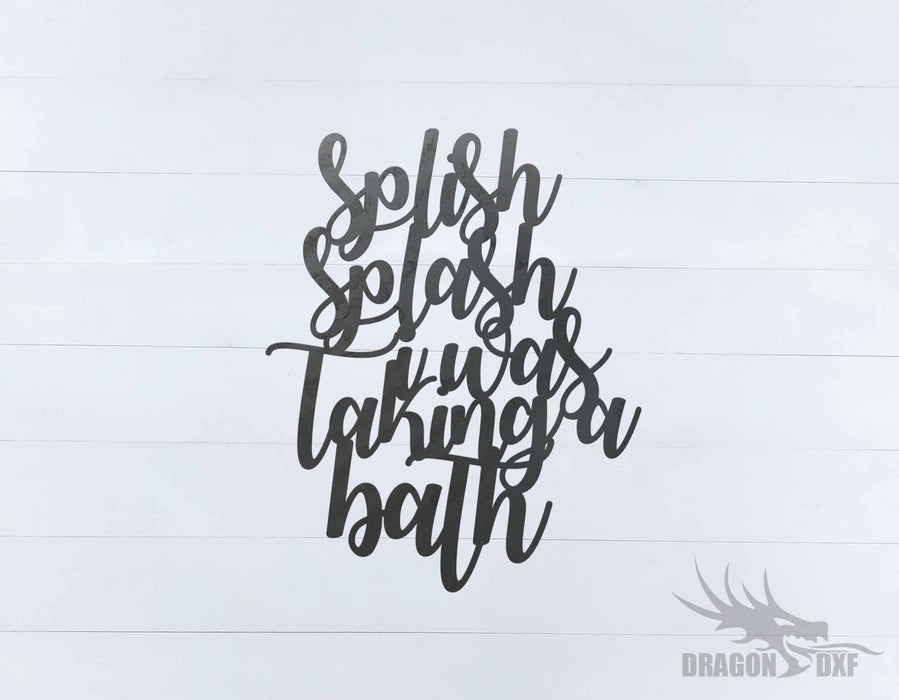 Splish
Splash
i was
Taking a
bath
DRAGON DXF